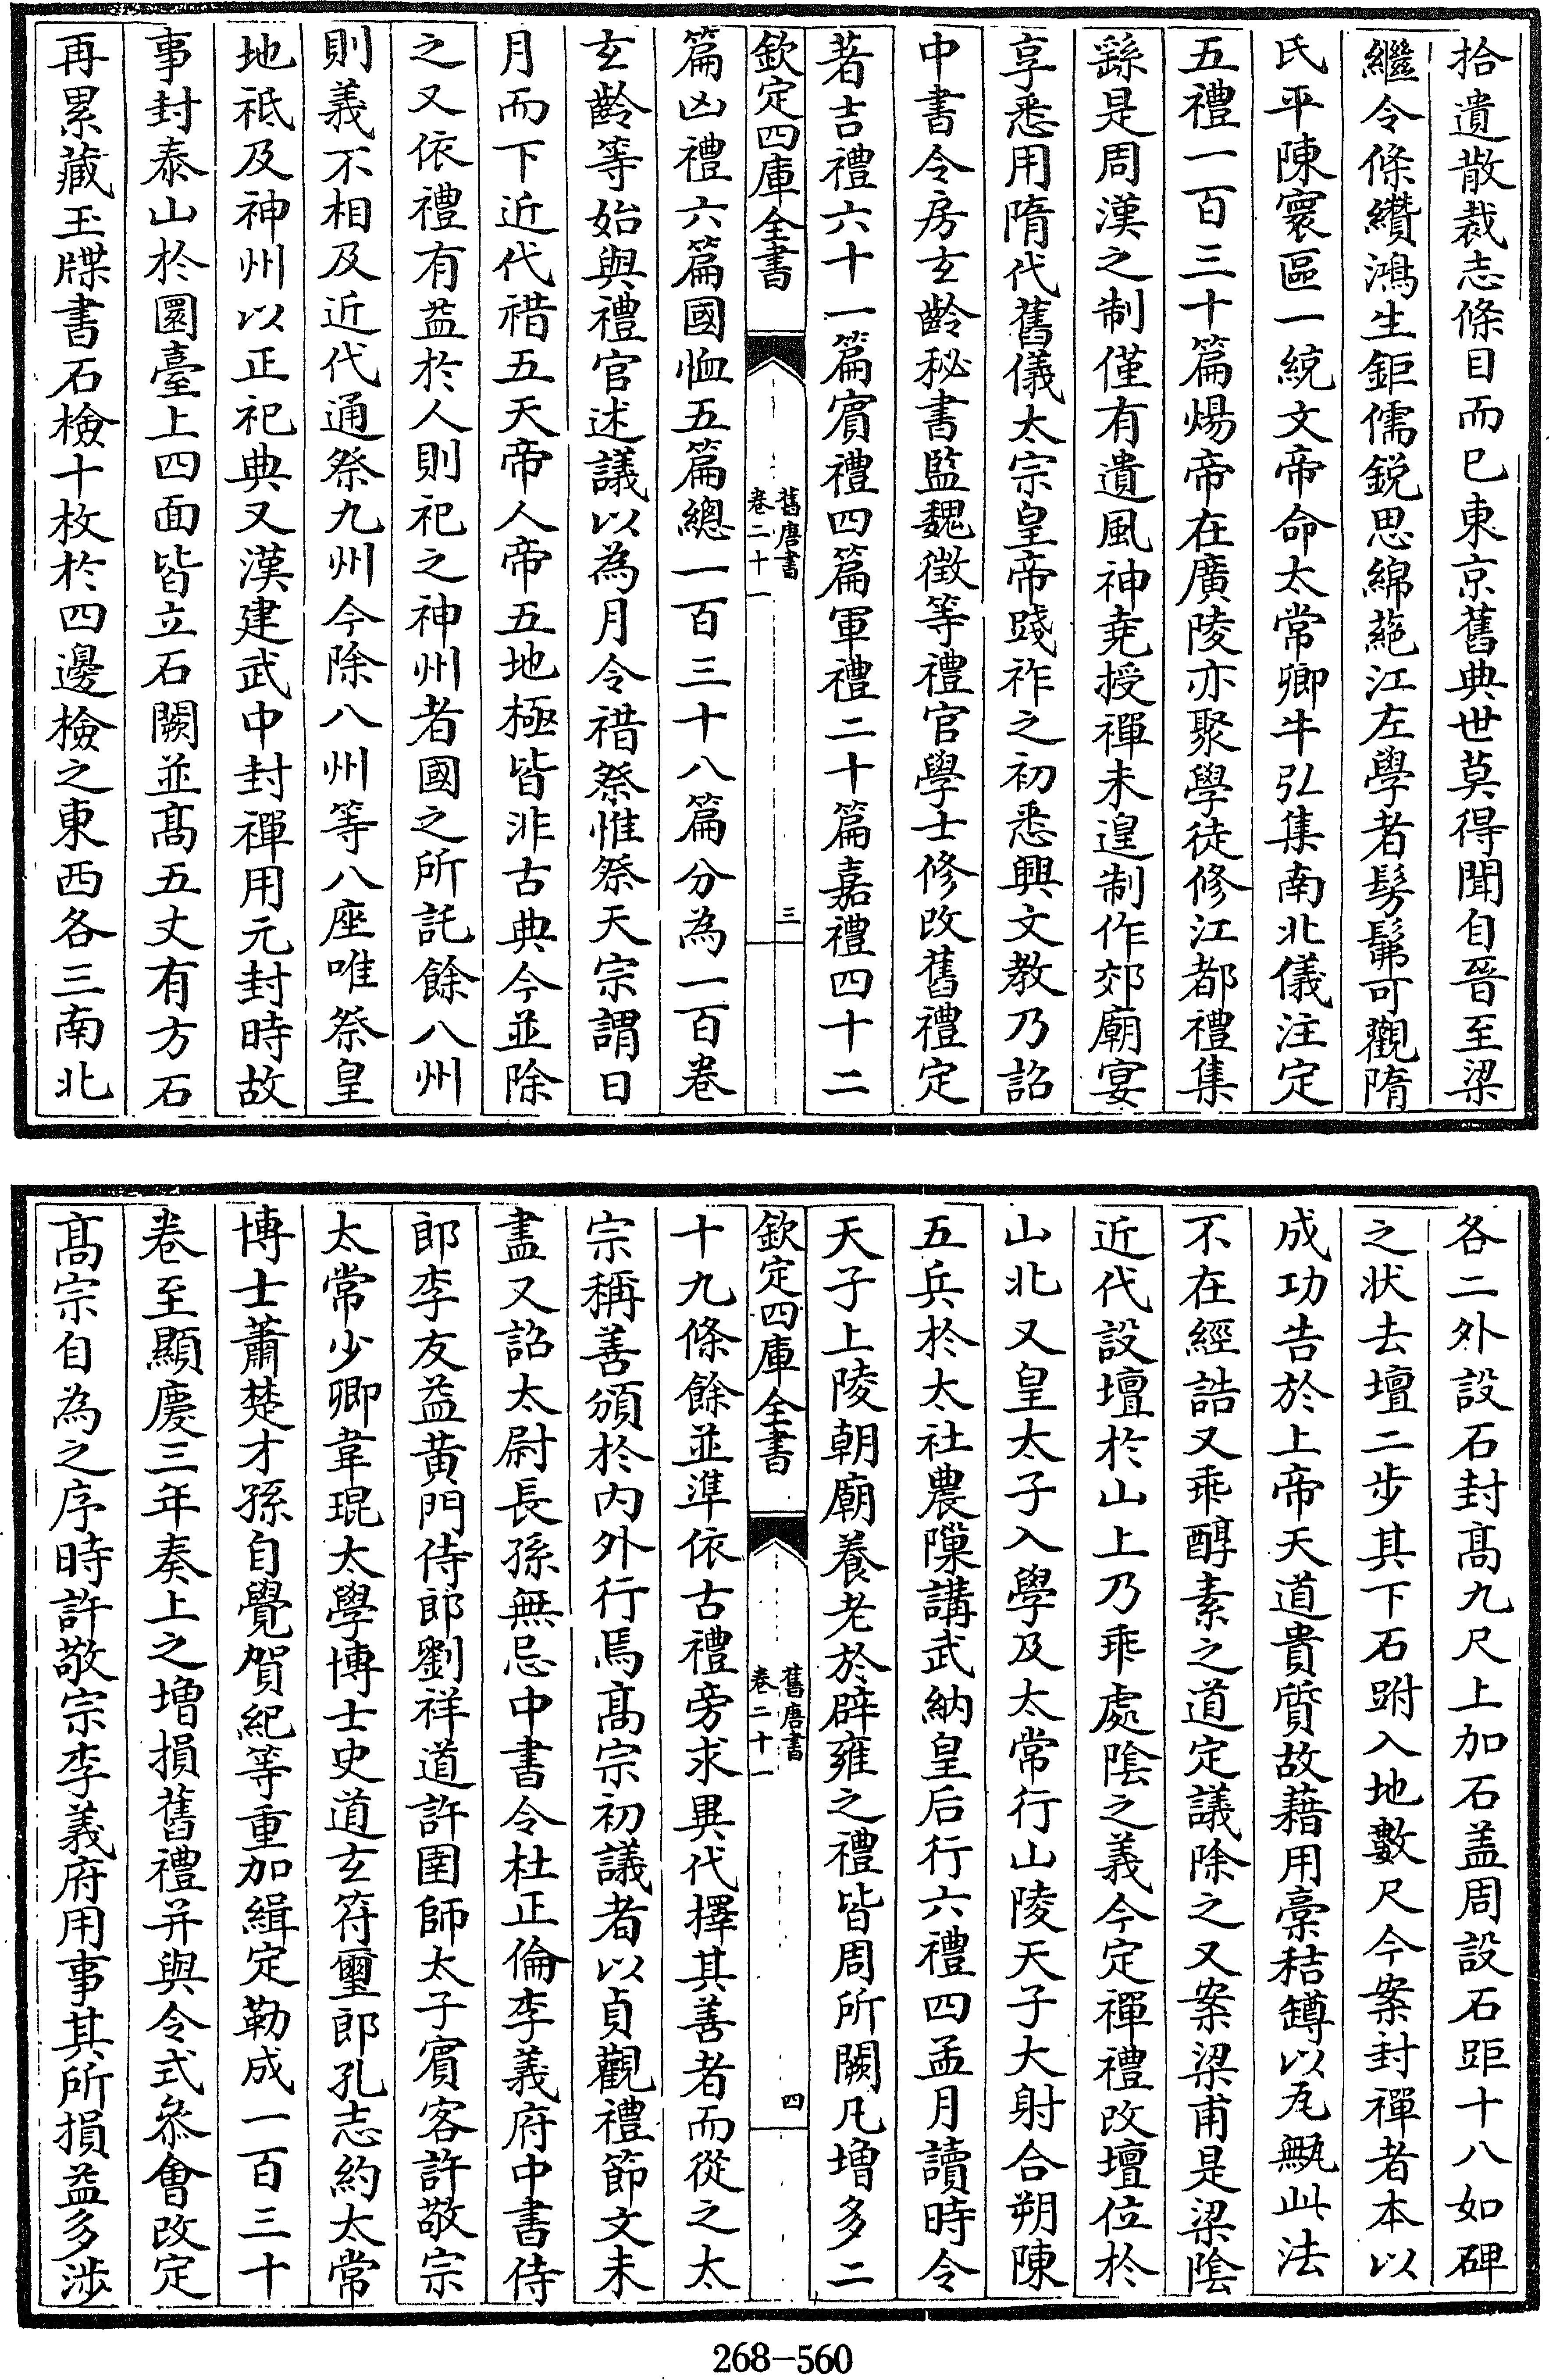 拾遺散裁志條目而已東京舊典世莫得聞自晉至梁
繼令條纘鴻生鉅儒銳思綿蕝江左學者髣髴可觀隋
氏平陳寰區一統文帝命太常卿牛弘集南北儀注定
五禮一百三十篇煬帝在廣陵亦聚學徒修江都禮集
繇是周漢之制僅有遺風神堯授禪未遑制作郊廟宴
享悉用隋代舊儀太宗皇帝踐祚之初悉興文教乃詔
中書令房玄齡秘書監魏徵等禮官學士修改舊禮定
著吉禮六十一篇賓禮四篇軍禮二十篇嘉禮四十二
欽定四庫全書
舊唐書
卷二十一
三
篇凶禮六篇國恤五篇總一百三十八篇分為一百卷
玄齡等始與禮官述議以為月令䄍祭惟祭天宗謂日
月而下近代䄍五天帝人帝五地極皆非古典今並除
之又依禮有益於人則祀之神州者國之所託餘八州
則義不相及近代通祭九州今除八州等八座唯祭皇
地祗及神州以正祀典又漢建武中封禪用元封時故
事封泰山於圜臺上四面皆立石闕並高五丈有方石
再累藏玉牒書石檢十枚於四邊檢之東西各三南北
各二外設石封高九尺上加石盖周設石距十八如碑
之状去壇二步其下石跗入地數尺今案封禪者本以
成功告於上帝天道貴質故藉用稾秸罇以瓦甒此法
不在經誥又乖醇素之道定議除之又案梁甫是梁陰
近代設壇於山上乃乖處陰之義今定禪禮改壇位於
山北又皇太子入學及太常行山陵天子大射合朔陳
五兵於太社農隟講武納皇后行六禮四孟月讀時令
天子上陵朝廟養老於辟雍之禮皆周所闕凡增多二
欽定四庫全書
舊唐書
卷二十一
四
十九條餘並準依古禮旁求異代擇其善者而從之太
宗稱善頒於内外行焉高宗初議者以貞觀禮節文未
盡又詔太尉長孫無忌中書令杜正倫李義府中書侍
郎李友益黃門侍郎劉祥道許圉師太子賓客許敬宗
太常少卿韋琨太學博士史道玄符璽郎孔志約太常
博士蕭楚才孫自覺賀紀等重加緝定勒成一百三十
卷至顯慶三年奏上之增損舊禮并與令式叅會改定
高宗自為之序時許敬宗李義府用事其所損益多涉
268-560